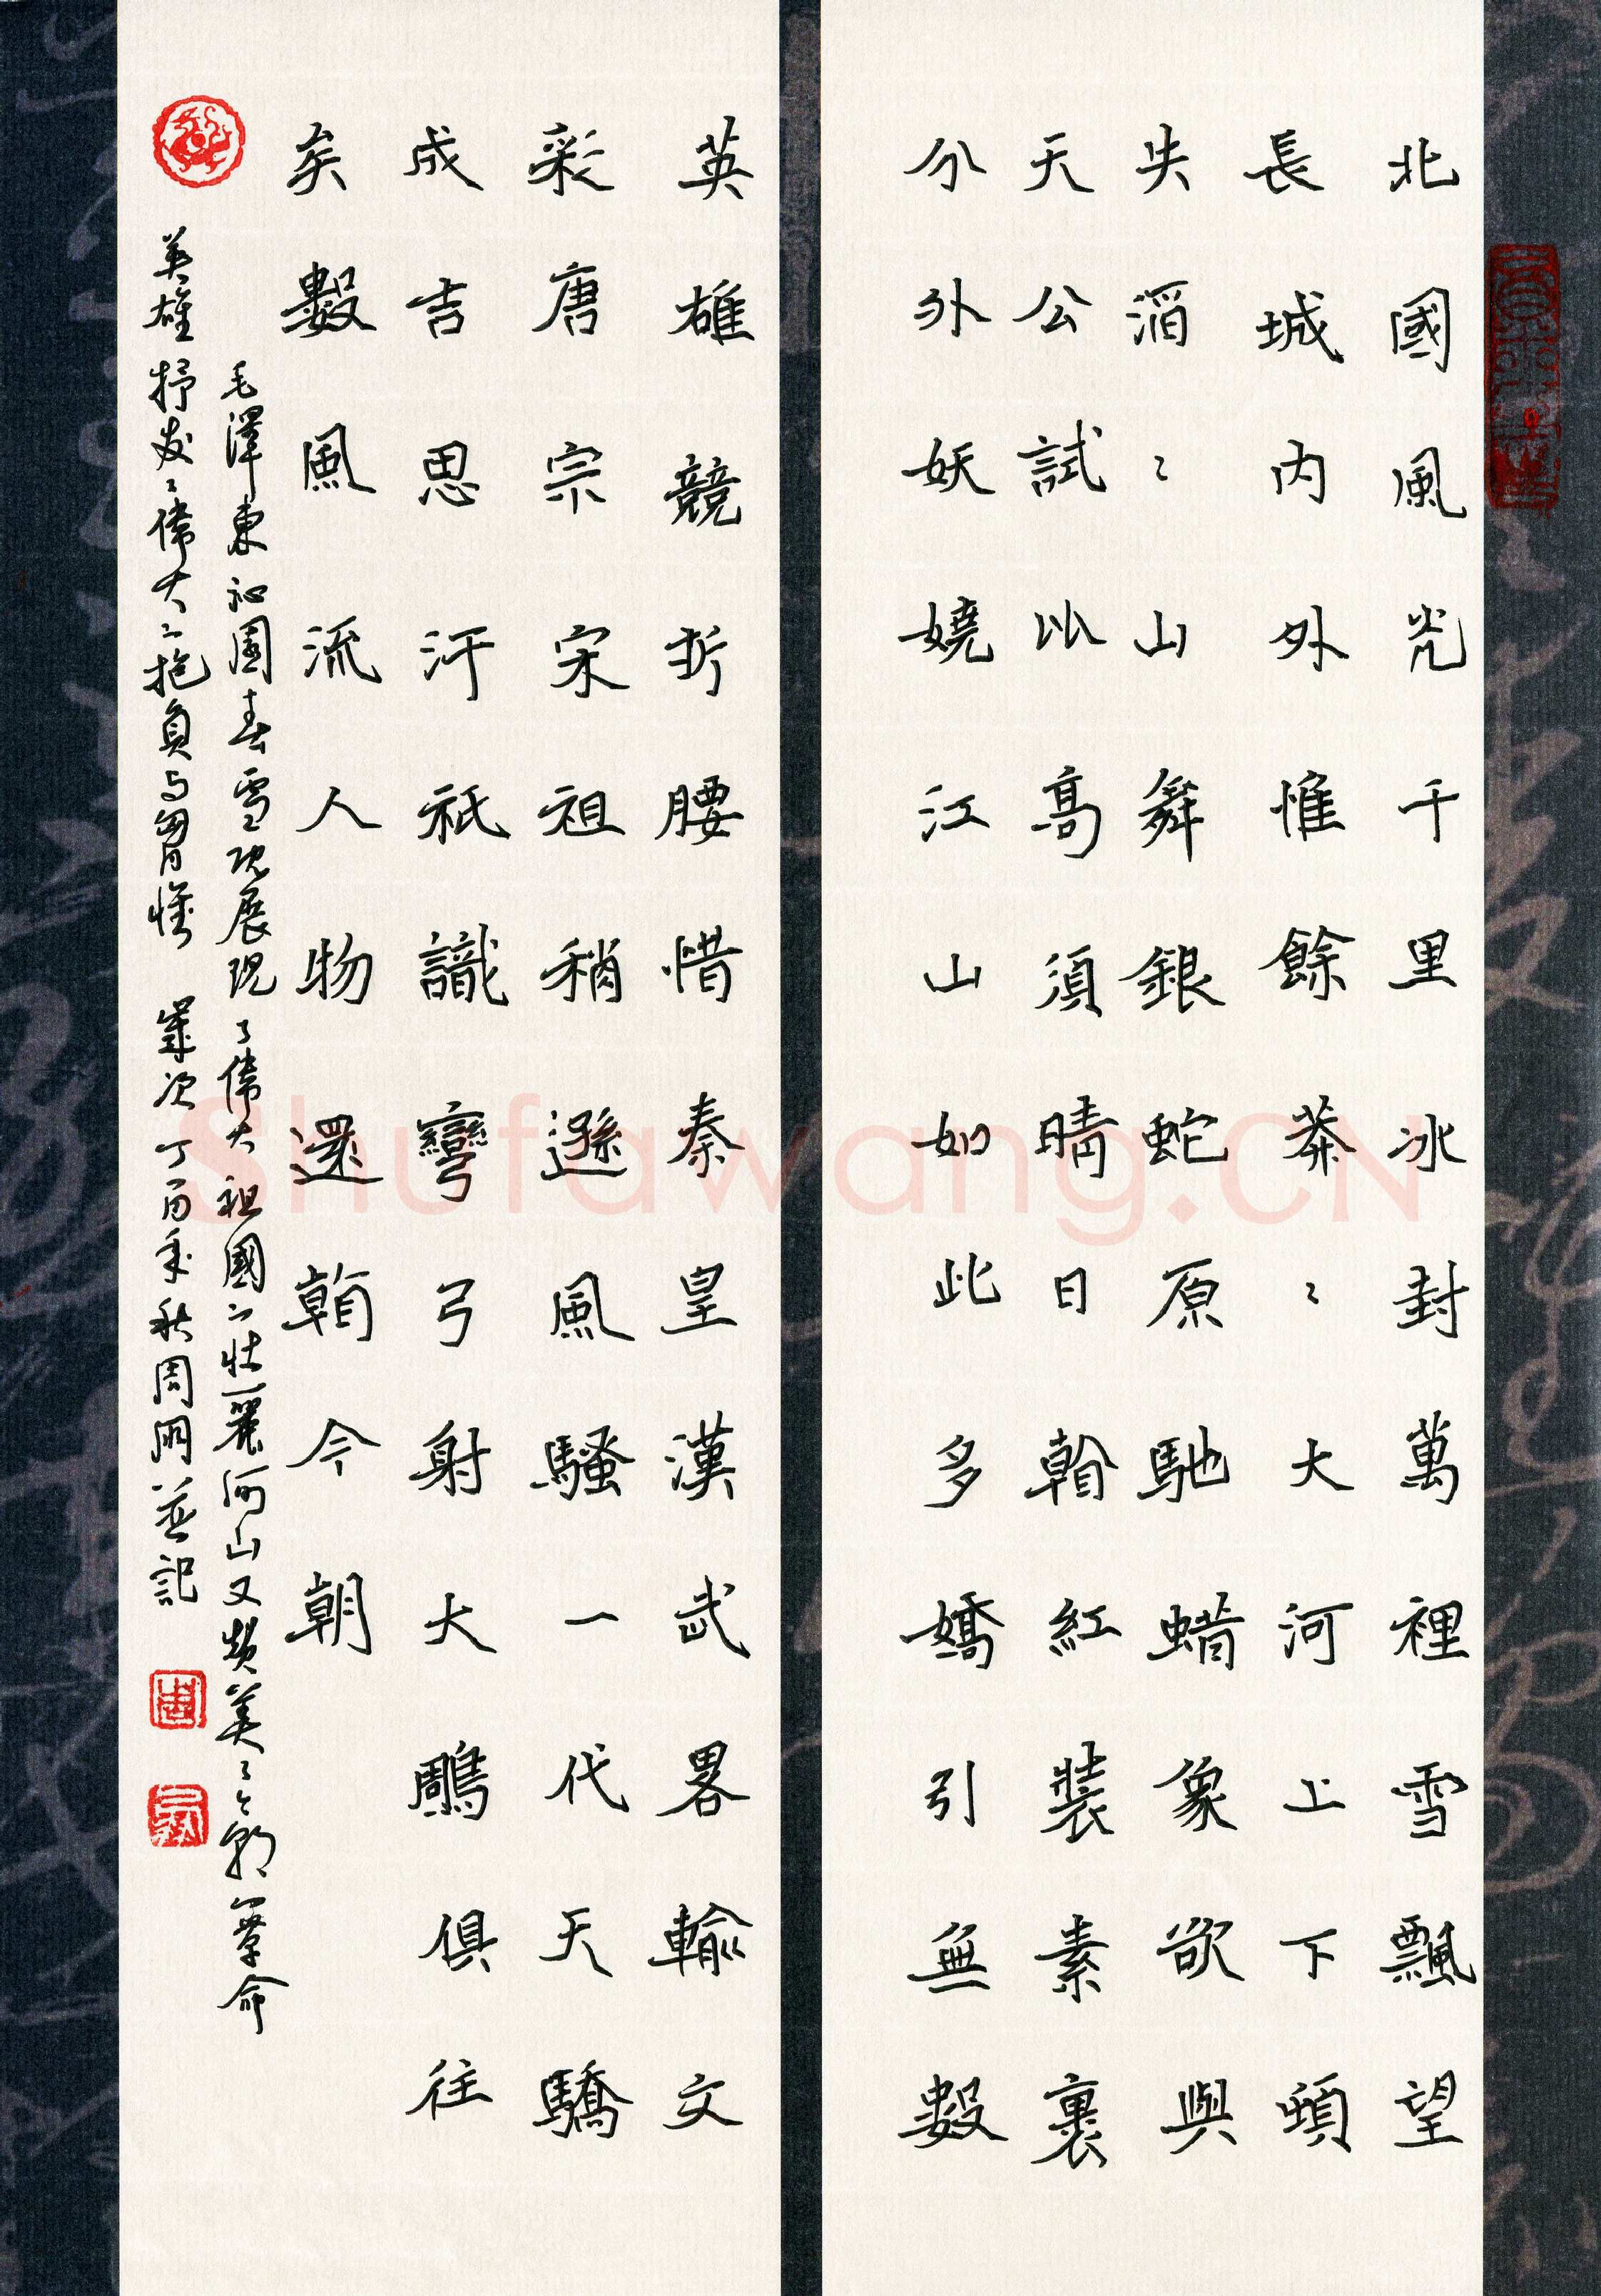 北國風光千里冰封萬裡雪飄望
長城内外惟餘莽〻大河上下頓
失滔〻山舞銀蛇原馳蜡象欲與
天公試以高須晴日看紅裝素裹
分外妖嬈江山如此多嬌引無數
英雄競折腰惜秦皇漢武畧輸文
彩唐宗宋祖稍遜風騷一代天驕
成吉思汗祇識彎弓射大鵰俱往
矣數風流人物還看今朝
毛澤東沁園春雪既展現了偉大祖國之壯麗河山又贊美了今朝革命
英雄抒发了偉大之抱負与胸懷 歲次丁酉年秋周朋並記
Shufawang.CN